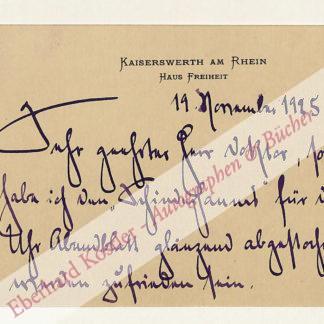 KAISERSWERTH AM RHEIN
HAUS FREIHEIT
19. November 1925
Sehr geehrter Herr Doktor, so
habe ich den "Schinderhannes" für d
Uhr Abendblatt glänzend abgestoche
werden zufrieden sein.
Eberhard Köstler Autographen & Bücher